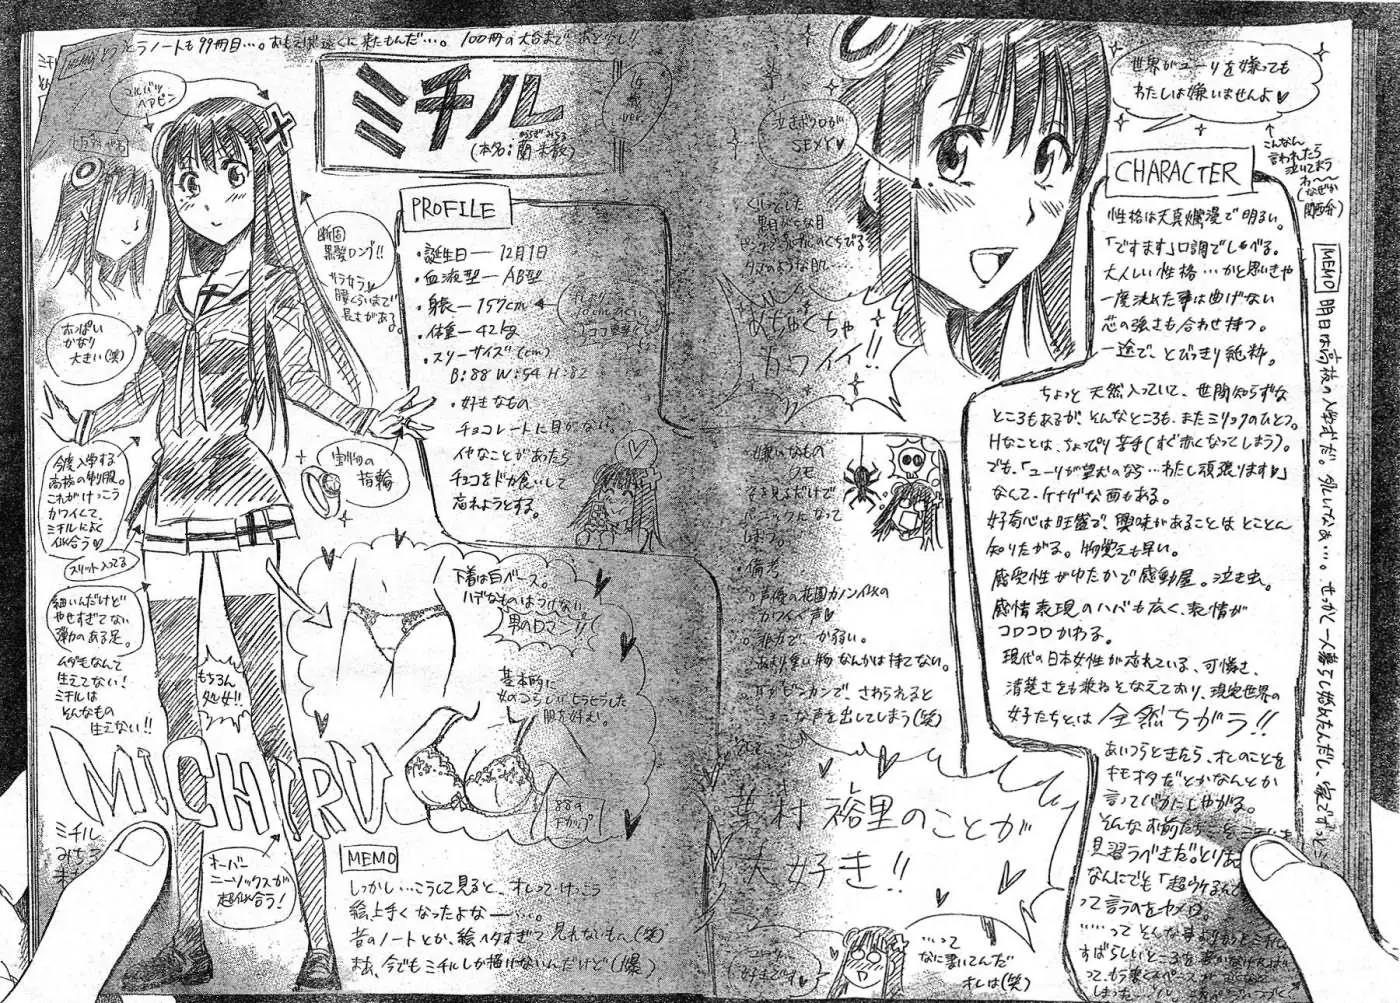 とうノートも99冊目…。おもえば遠くに来たもんだ…。100冊の大台まであと少し!!
ミチル
16歳
ver.
(本名:蘭 未散)
ヘアピン
断固
黒髪ロング!!
サラサラ
腰くらいまで
長さがある。
おっぱい
かなり
大きい(笑)
宝物の
指輪
今度入学する
高校の制服。
これがけっこう
カワイくて、
ミチルによく
似合う♡
スリット入ってる
細いんだけど
やせすぎてない
弾力のある足。
ムダ毛なんて
生えてない!
ミチルは
そんなもの
生えない!!
もちろん
処女!!
MICHIRU
オーバー
ニーソックスが
超似合う!
PROFILE
・誕生日―12月1日
・血液型―AB型
・身長―157cm
・体重―42kg
・スリーサイズ(cm)
B:88 W:54 H:82
・好きなもの
チョコレートに目がない。
イヤなことがあったら
チョコをドカ食いして
忘れようとする。
下着は白ベース。
ハデなものはつけない。
男のロマン!!
基本的に
女のコらしいヒラヒラした
服を好む。
88の
Fカップ
MEMO
しっかし…こうして見ると、オレってけっこう
絵上手くなったよなー…。
昔のノートとか、絵ヘタすぎて見れないもん(笑)
まあ、今でもミチルしか描けないんだけど(爆)
泣きボクロが
SEXY♡
クリッとした
黒目がちな目
タマのような肌…
めちゃくちゃ
カワイイ!!
・嫌いなもの
クモ
パニックになって
しまう。
・備考
声優の花園カノン似の
カワイイ声♡
非力で、か弱い。
あまり重い物なんかは持てない。
耳がビンカンで、さわられると
ヘンな声を出してしまう(笑)
そして
葉村 裕里のことが
大好き!!
…って
なに書いてんだ
オレは(笑)
世界がユーリを嫌っても
わたしは嫌いませんよ♡
こんなん
言われたら
泣いてまう
わ〜〜
(なぜか
関西弁)
CHARACTER
性格は天真爛漫で明るい。
「ですます」口調でしゃべる。
大人しい性格…かと思いきや
一度決めた事は曲げない
芯の強さも合わせ持つ。
一途で、とびっきり純粋。
ちょっと天然入っていて、世間知らずな
ところもあるが、そんなところも、またミリョクのひとつ。
Hなことは、ちょっぴり苦手(すぐ赤くなってしまう)。
でも、「ユーリが望むのなら…わたし頑張ります♡」
なんて、ケナゲな面もある。
好奇心は旺盛で、興味があることはとことん
知りたがる。物覚えも早い。
感受性がゆたかで感動屋。泣き虫。
感情表現のハバも広く、表情が
コロコロかわる。
現代の日本女性が忘れている、可憐さ、
清楚さをも兼ねそなえており、現実世界の
女子たちとは全然ちがう!!
あいつらときたら、オレのことを
キモオタだとかなんとか
言ってバカにしやがる。
そんなお前たちこそ ミチルを
見習うべきだ。
なんにでも「超ウケるんで
って言うのをヤメロ。
……って そんな事よりもっとミチル
すばらしいところを書かなければ
MEMO
明日は高校の入学式だ。
せっかく一人暮らし始めたんだし、家でずっと